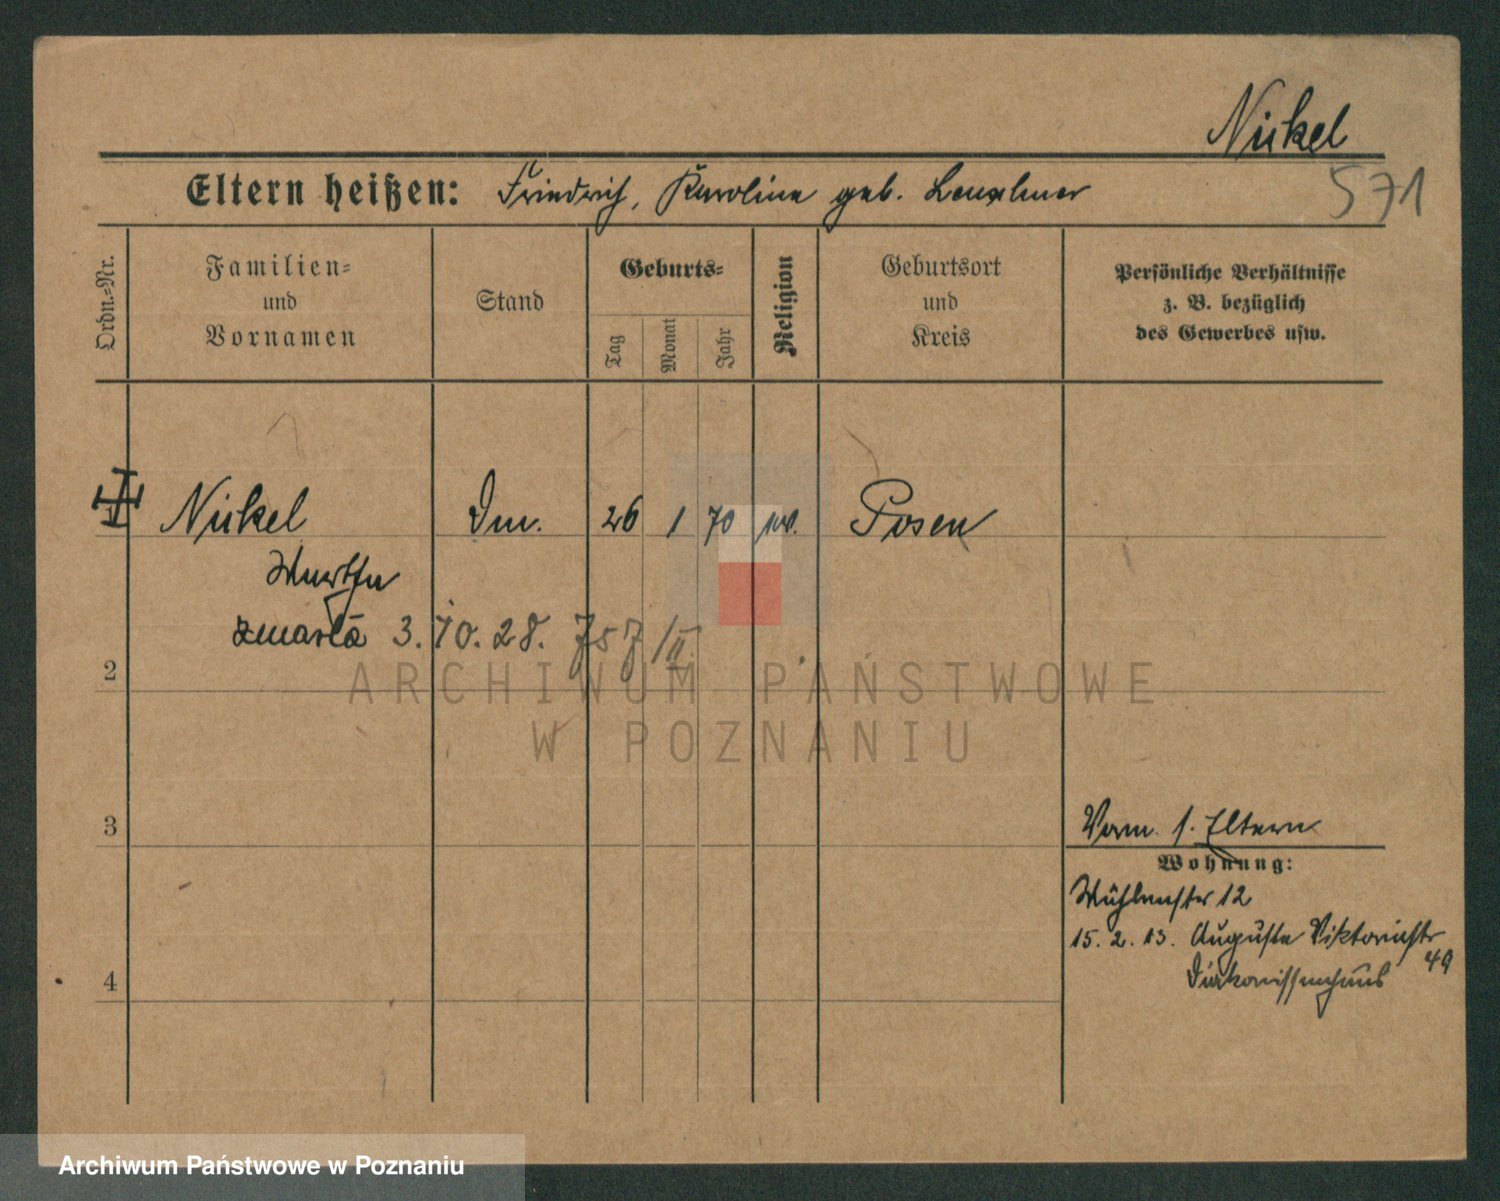 Nickel
Eltern heißen: Friedrich, Karoline geb.
571
Ordn.-Nr.
Familien-
und
Vornamen
Stand
Geburts-
Tag
Monat
Jahr
Religion
Geburtsort
und
Kreis
Persönliche Verhältnisse
z. B. bezüglich
des Gewerbes usw.
Nickel 26 1 70 Posen
Martha
zmarła 3.10.28. 757/II
2
ARCHIWUM PAŃSTWOWE
W POZNANIU
3
Vorm. s. Eltern
Wohnung:
Mühlenstr 12
15. 2. 13. Auguste Viktoriastr
49
Diakonissenhaus
4
Archiwum Państwowe w Poznaniu